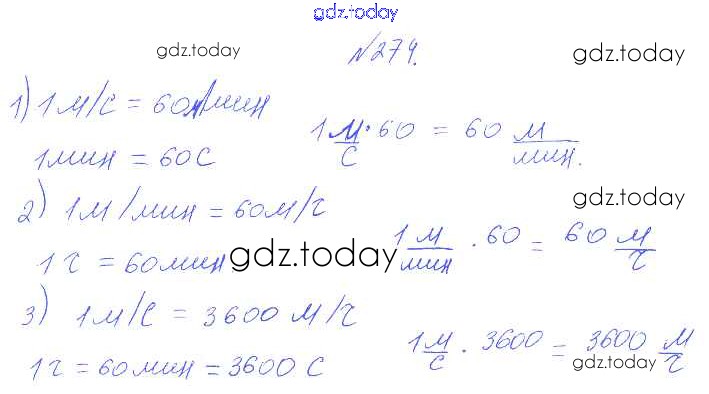 gdz.today
gdz.today
№274.
gdz.today
1) 1 м/с = 60 м/мин
1 м/с · 60 = 60 м/мин.
1 мин = 60 с
gdz.today
2) 1 м/мин = 60 м/ч
1 м/мин · 60 = 60 м/ч
1 ч = 60 мин
gdz.today
3) 1 м/с = 3600 м/ч
1 м/с · 3600 = 3600 м/ч
1 ч = 60 мин = 3600 с
gdz.today